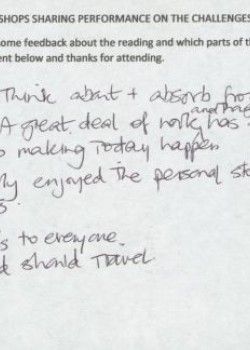 SHOPS SHARING PERFORMANCE ON THE CHALLENGES
some feedback about the reading and which parts of th
ent below and thanks for attending.
Think about + absorb fro
A great deal of work has
making Today happen
enjoyed the personal st
s to everyone.
should Travel